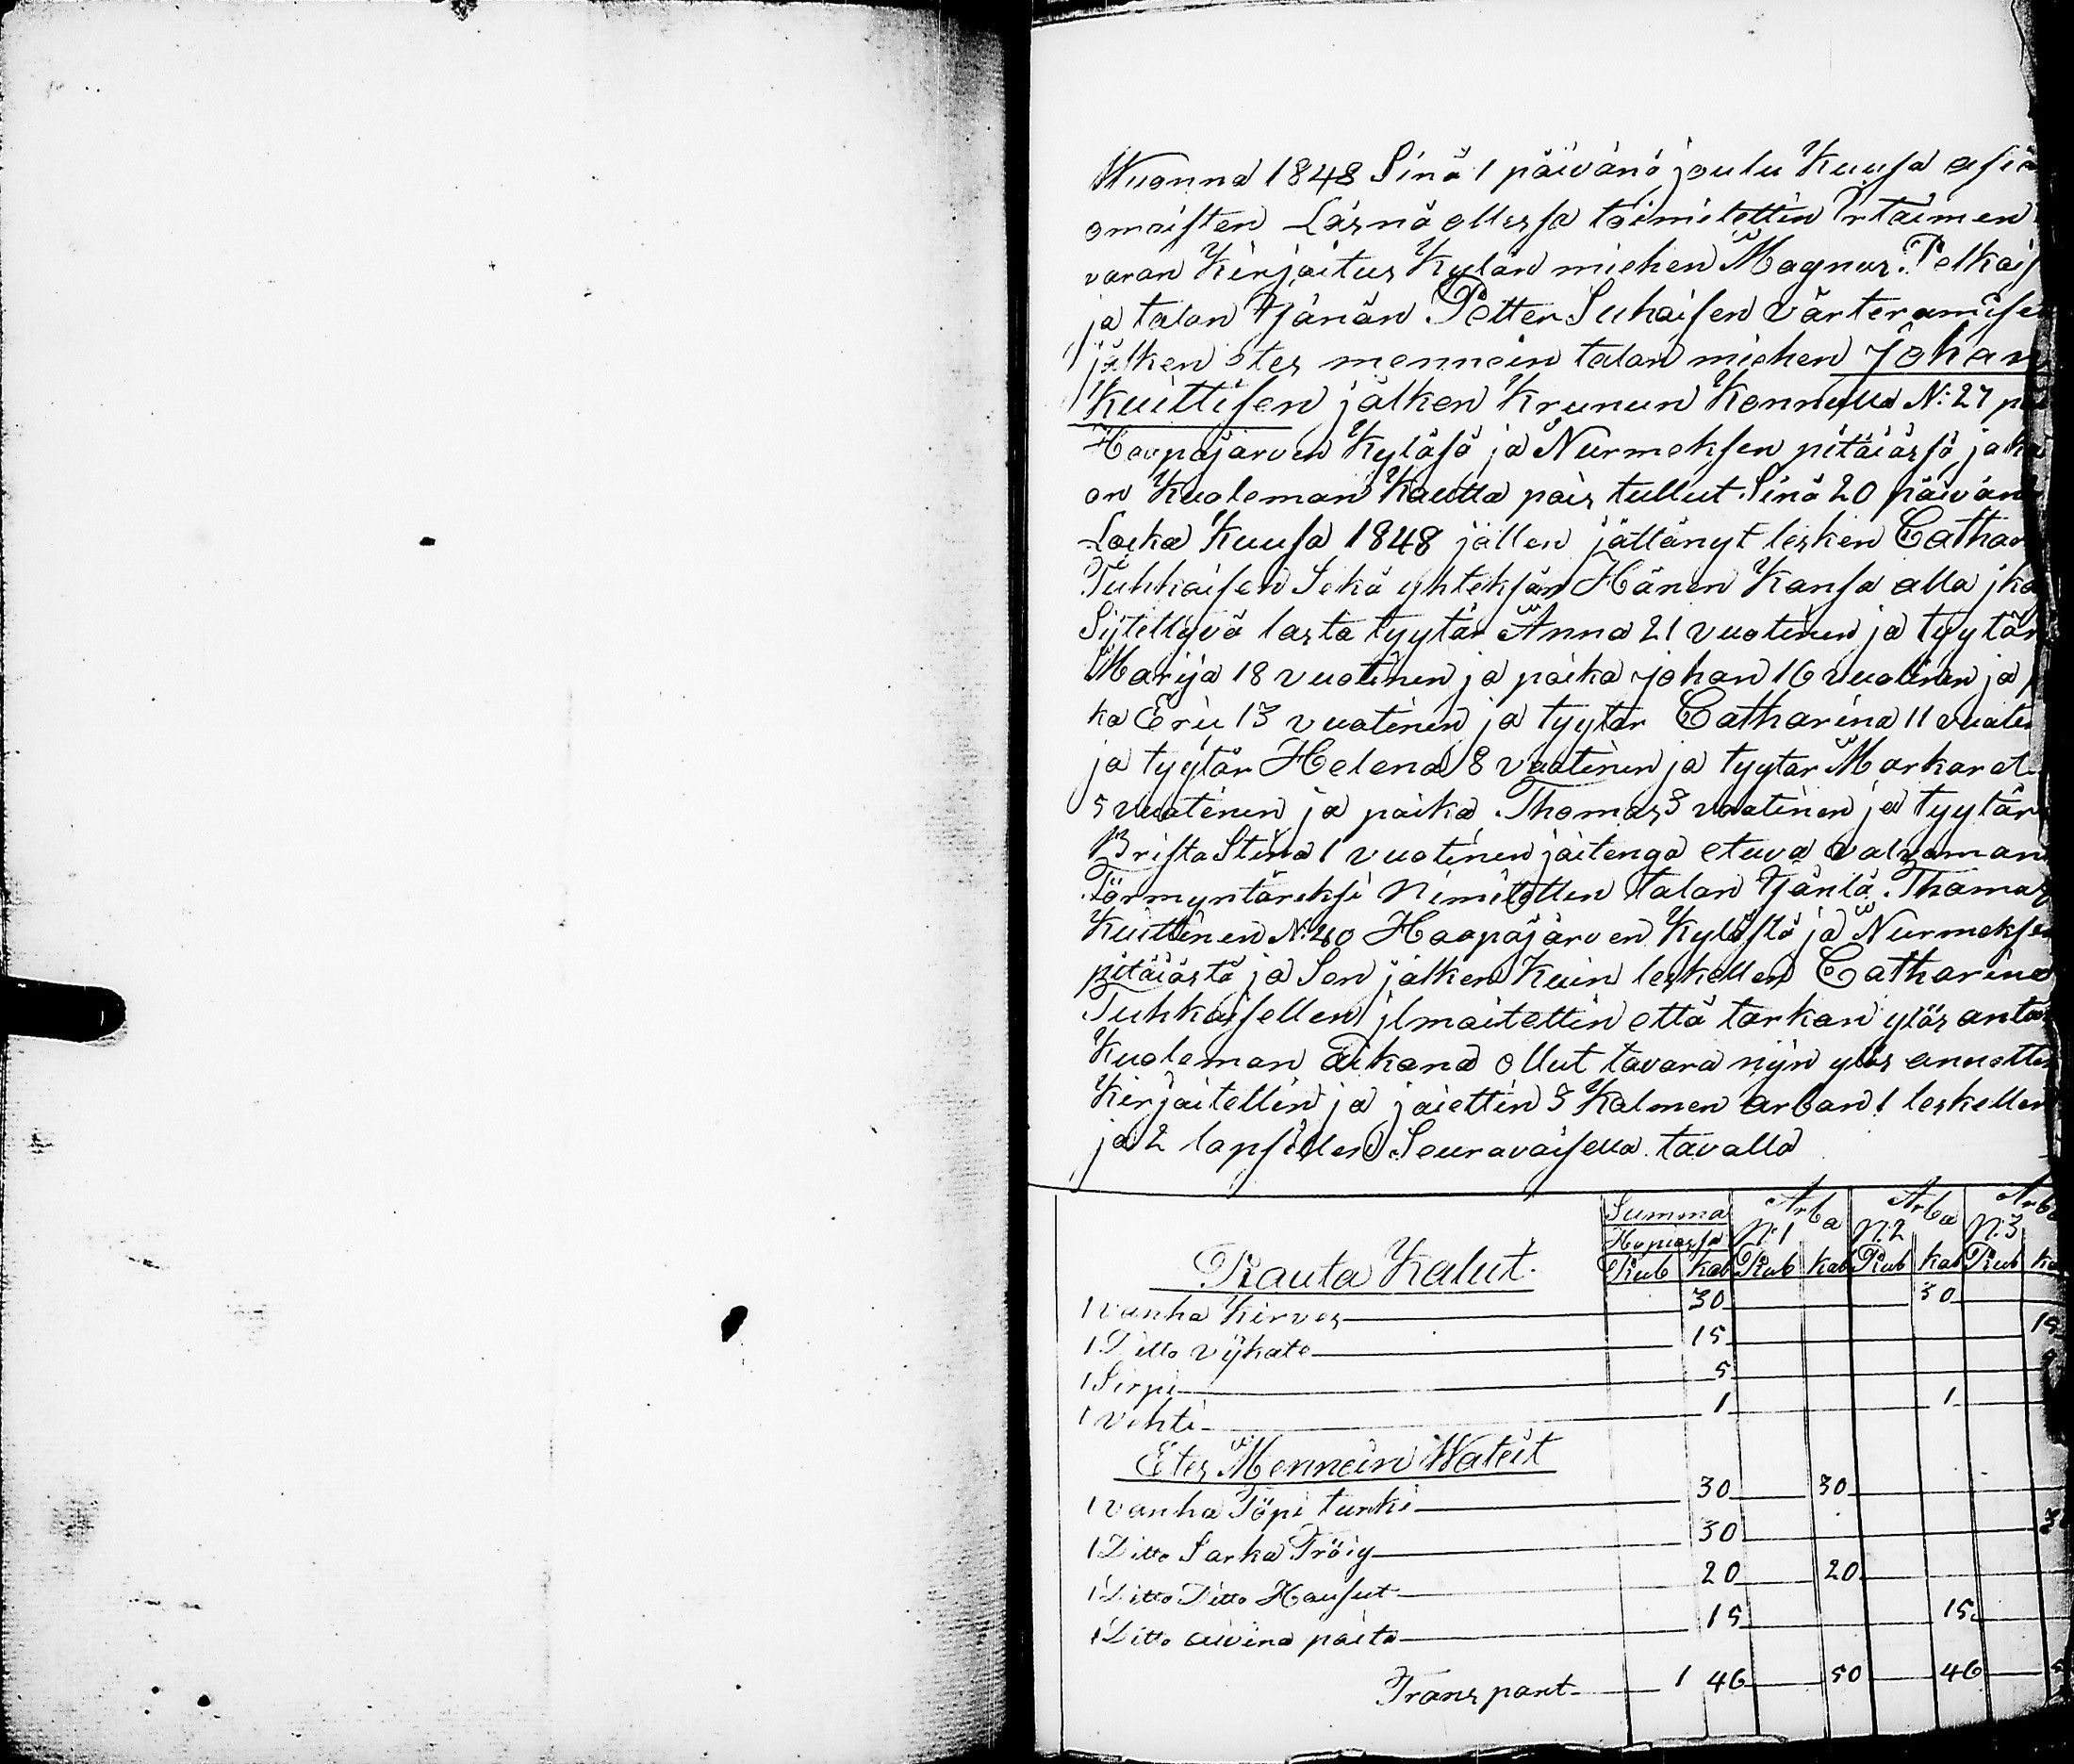 Wuonna 1848 Sinä 1 päivänä joulu Kuusa asia
omaisten Läsnä ollessa toimitettin Irtaimen
varan Kirjaitus Kylän miehen Magnus Pelkais
ja talon Isänän Petter Suhaisen värteramisen
jälken etes mennein talan miehen Johan
Kuittisen jälken Krunun Konnulla N: 27 pä
Haapajärven Kyläsä ja Nurmeksen pitäiässä joka
on Kuoleman Kautta pois tullut Sinä 20 päivänä
Loka Kuusa 1848 jällen jättänyt lesken Cathar
Tuhkaisen Sekä yhteksän Hänen Kansa alla jka
Sijtettyvä lasta tyytär Anna 21 vuotinen ja tyytär
Marija 18 vuotinen ja poika Johan 16 vuotinen ja p
ka Eric 13 vuotinen ja tyytär Catharina 11 vuotin
ja tyytär Helena 8 vuotinen ja tyytar Markaret
5 vuotinen ja poika Thomas 3 vuotinen ja tyytär
Brista Stina 1 vuotinen joitenga etuva valvoman
Förmyntäreksi Nimitettin talon Isäntä Thomas
Kuittinen N: 40 Haapajärven Kylästä ja Nurmeksen
pitäiästä ja Sen jälken Kuin leskellen Catharina
Tuhkaisellen jlmoitettin että tarkan ylös anta
Kuoleman Aikana ollut tavara nijn ylös annettin
Kirjaitettin ja jaiettin 3 Kolmen arban 1 leskellen
ja 2 lapsillen Seuravaisella tavalla
Summa Arba Arba Arba
Hopiassa N:1 N:2 N:3
Rauta Kalut. Rub kob Rub kob Rub kob Rub ko
1 vanha Kirves 30 30
1 Ditto vijkate 15 15
1 Sirpi 5
1 vehti 1 1
Etes Mennein Wateit
1 vanha Töpi turki 30 30
1 Ditto Sarka Tröig 30 3
1 Ditto Ditto Housut 20 20
1 Ditto aivina paita 15 15
Transport 1 46 50 46 5